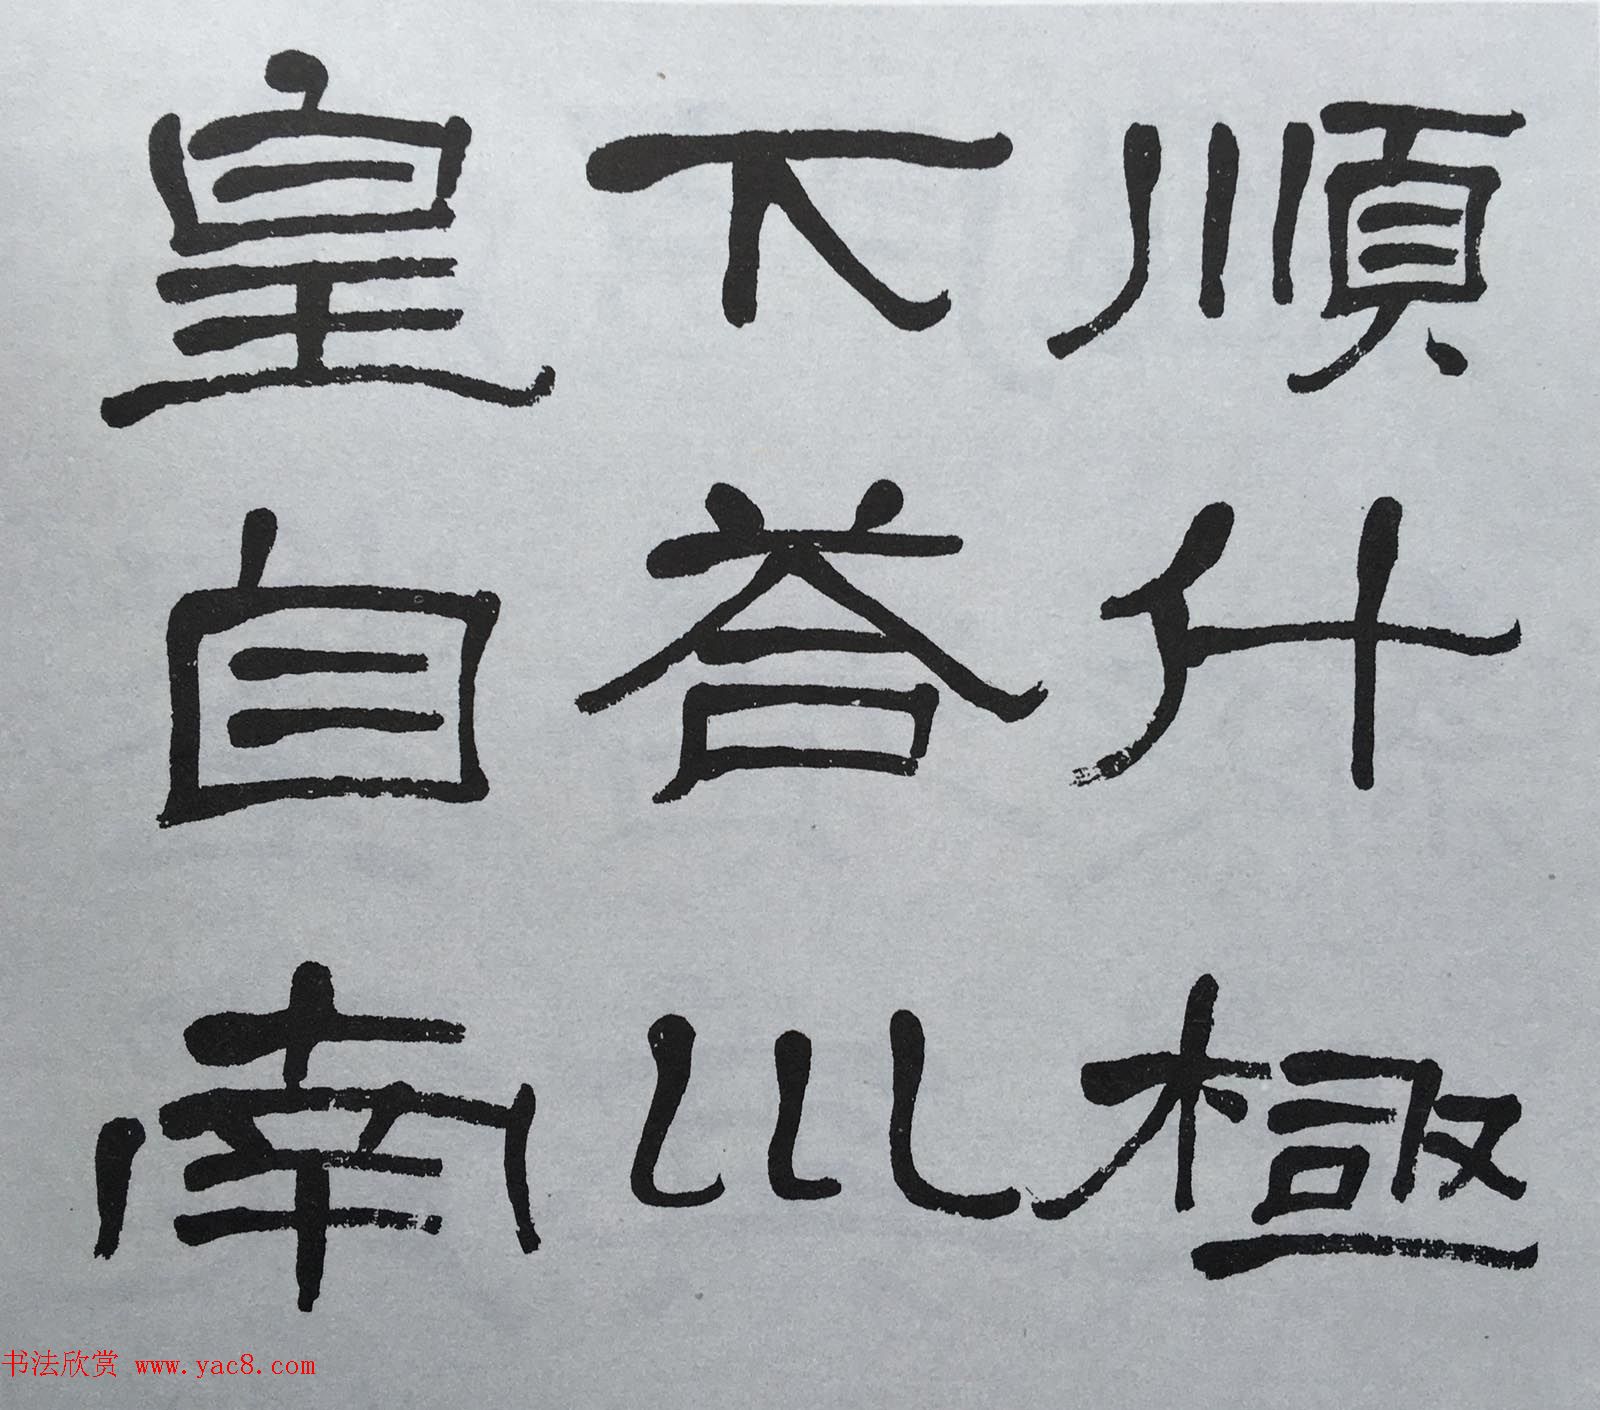 順斗極
下荅巛
皇自南
书法欣赏 www.yac8.com